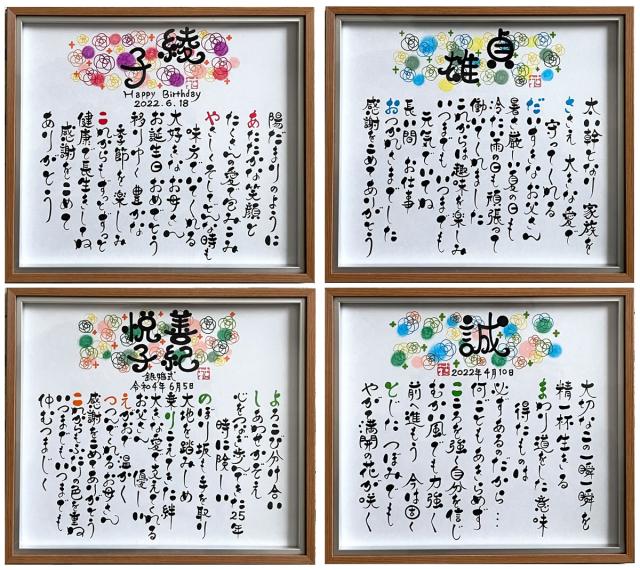 綾子
Happy Birthday
2022.6.18
陽だまりのように
あたたかな笑顔と
たくさんの愛で包みこみ
やさしくそしてどんな時も
味方でいてくれる
大好きなお母さん
お誕生日おめでとう
移りゆく 豊かな
季節を楽しみ
これからもずっとずっと
健康で長生きしてね
感謝をこめて
ありがとう
貞雄
太い幹となり 家族を
ささえ 大きな愛で
守ってくれる
だいすきなお父さん
暑い厳しい夏の日も
冷たい雨の日も頑張って
働いてくれました
これからは趣味を楽しみ
いつまでもいつまでも
元気でいてね
長い間 お仕事
おつかれさまでした
感謝をこめてありがとう
善紀
悦子
銀婚式
令和4年6月5日
よろこび分け合い
しあわせかぞえ
心をつなぎ歩んできた25年
時に険しい
のぼり坂も手を取り
大地を踏みしめ
乗りこえてきた絆
大きな愛で支えてくれる
お父さん 優しい
えがおで 温かく
つつんでくれるお母さん
感謝をこめてありがとう
これからもふたりの色を重ね
いつまでもいつまでも
仲むつまじく
誠
2022年4月10日
大切なこの一瞬一瞬を
精一杯生きる
得たものは
まわり道をした意味
必ずあるのだから…
何ごともあきらめず
こころを強く自分を信じ
むかい風でも力強く
前に進もう 今は固く
とじたつぼみでも
やがて満開の花が咲く